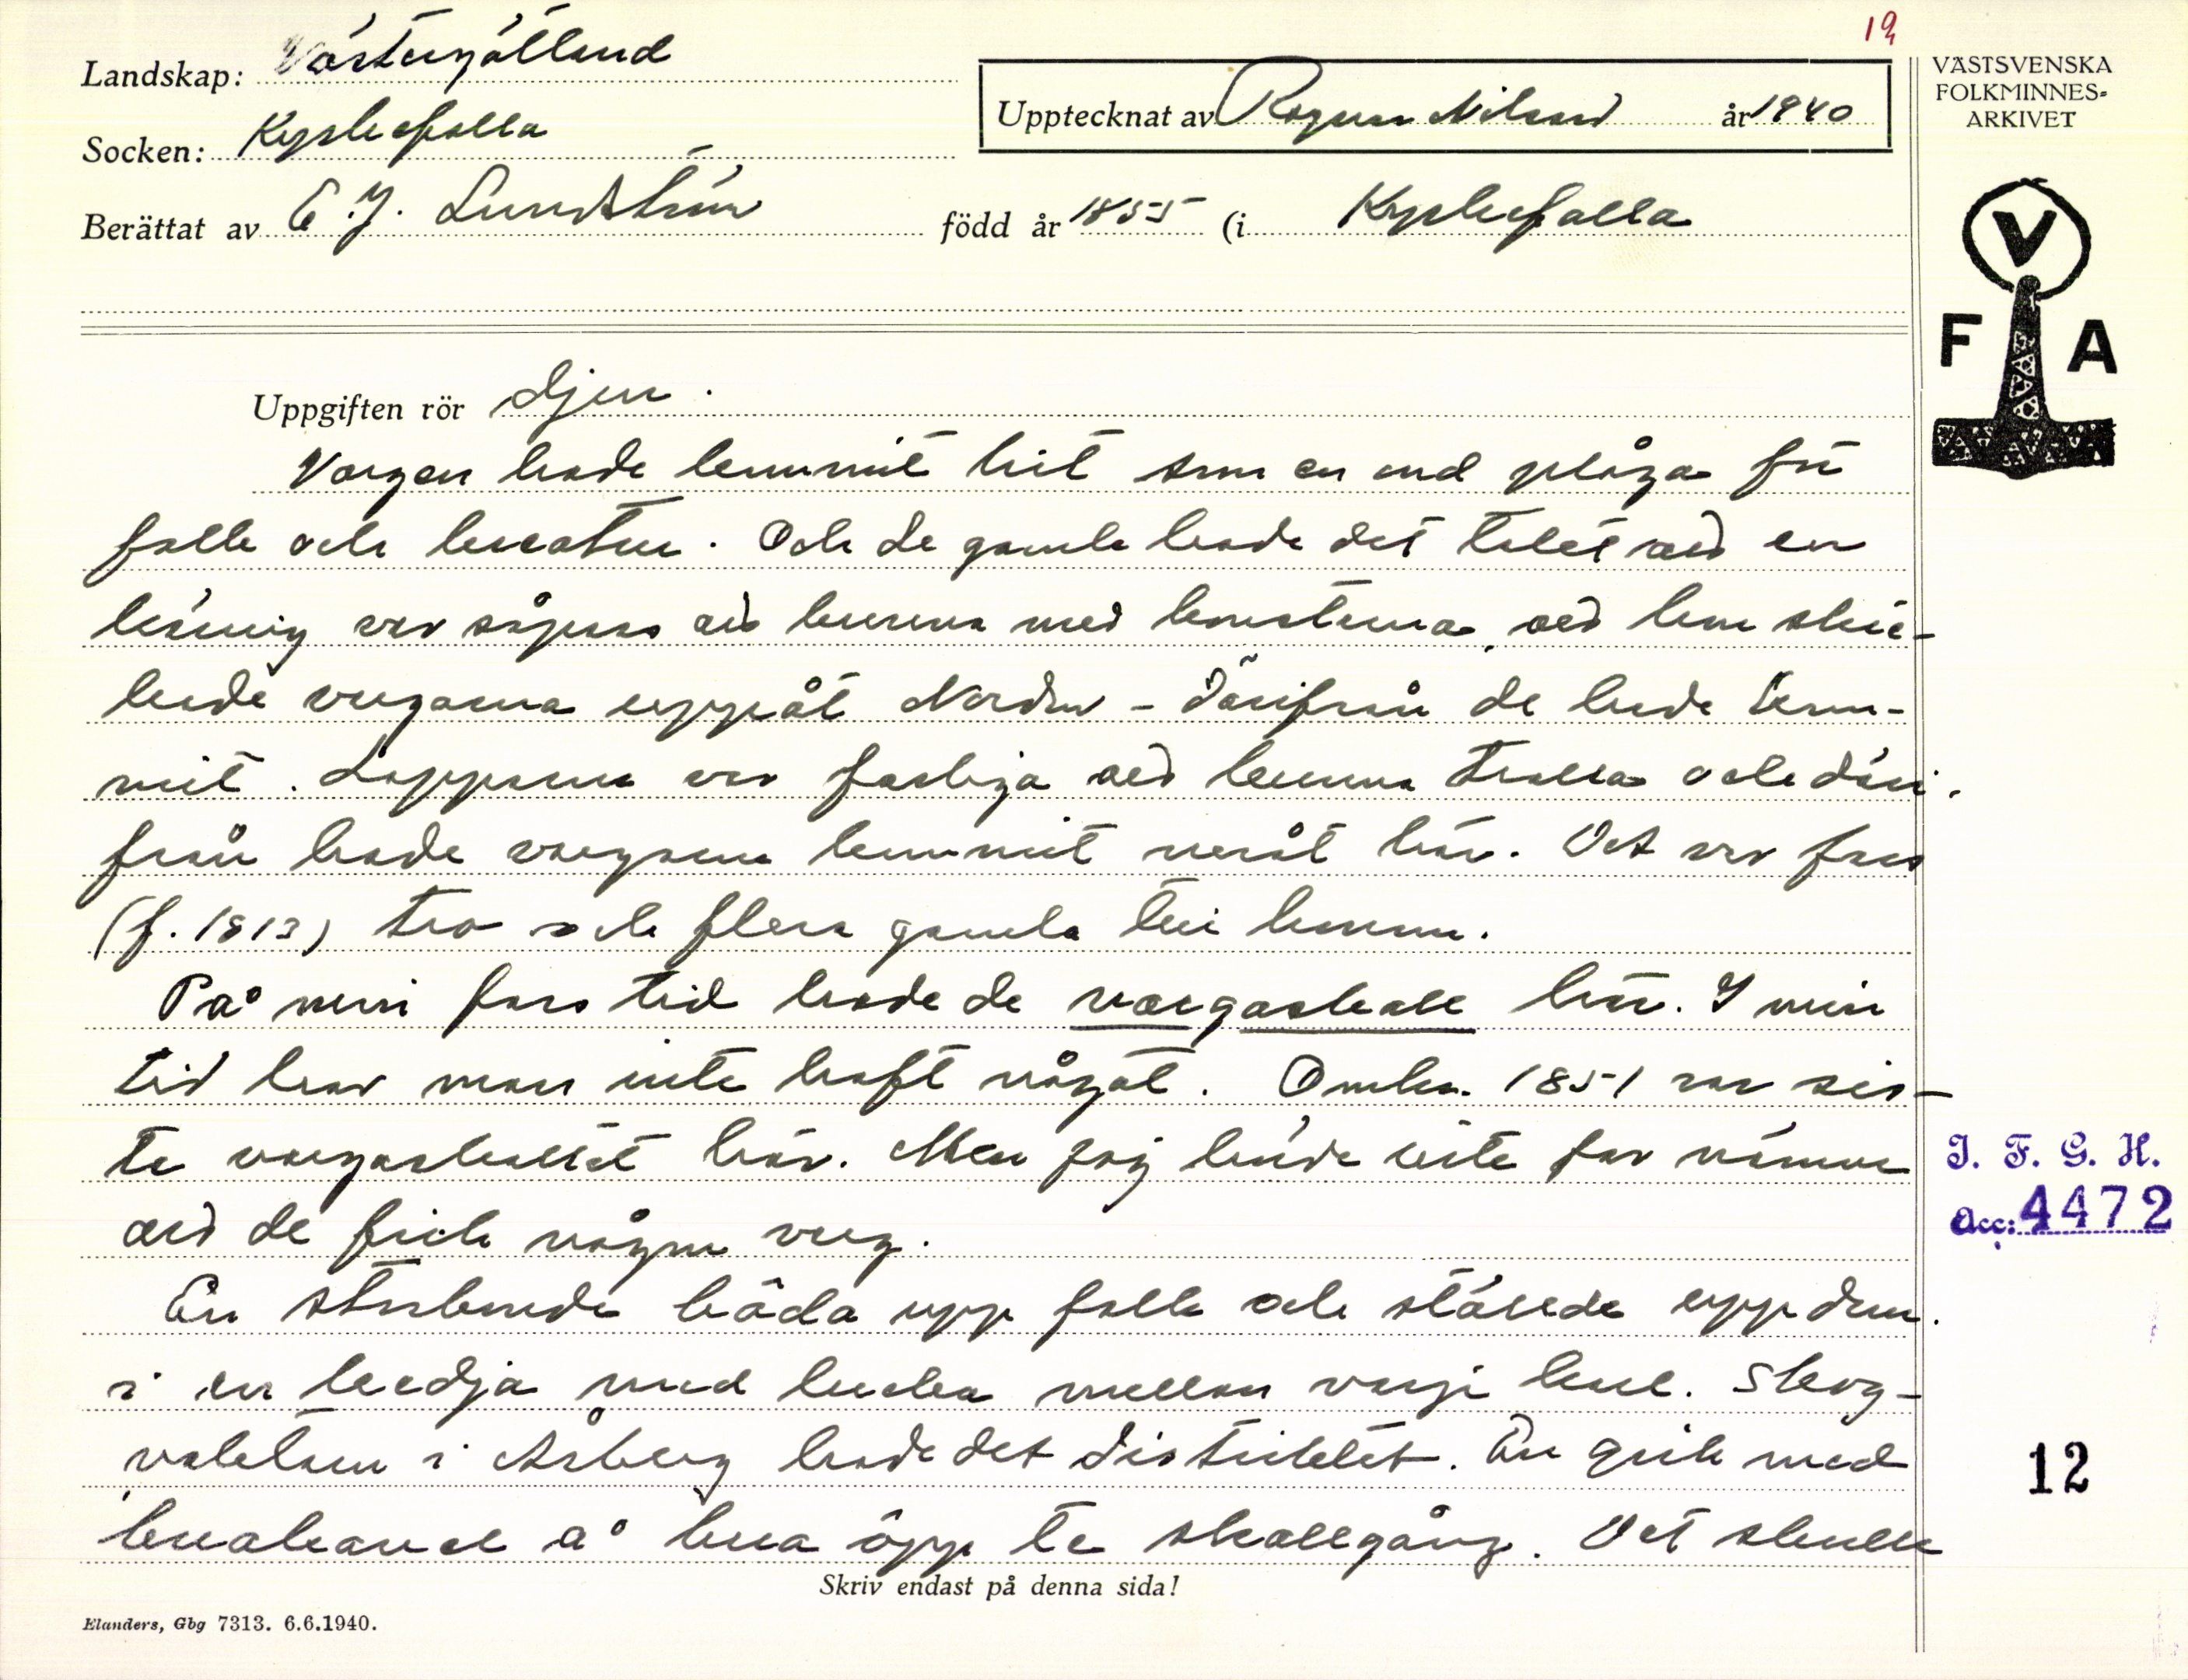 19
Landskap: Västergötland
Socken: Kyrkefalla
Berättat av E. J. Lundström född år 1855 (i Kyrkefalla
Upptecknat av Ragnar Nilsson år 1940
VÄSTSVENSKA
FOLKMINNES-
ARKIVET
V
F A
Uppgiften rör Djur.
Vargen hade kommit hit som en ond plåga för
folk och kreatur. Och de gamla hade det talet att en
kunnig var såpass att kunna med konsterna, att han skic-
kade vargarna uppåt Norden - därifrån de hade kom-
mit. Lapparna var färdiga att kunna trolla och däri-
från hade vargarna kommit neråt här. Det var fars
(f. 1813) tro och flera gamla tei honom.
På min fars tid hade de vargaskall här. I min
tid har man inte haft något. Omkr. 1851 var sis-
te vargaskallet här. Men jag hörde inte far nämna
att de fick någon varg.
En storbonde båda upp folk och ställde upp dem
i en kedja med lucka mellan varje karl. Skog-
vaktaren i Åsberg hade det distriktet. En gick med
buakavel å bua öpp te skallgång. Det skulle
Skriv endast på denna sida!
Elanders, Gbg 7313. 6.6.1940.
I. F. G. H.
Acc: 4472
12